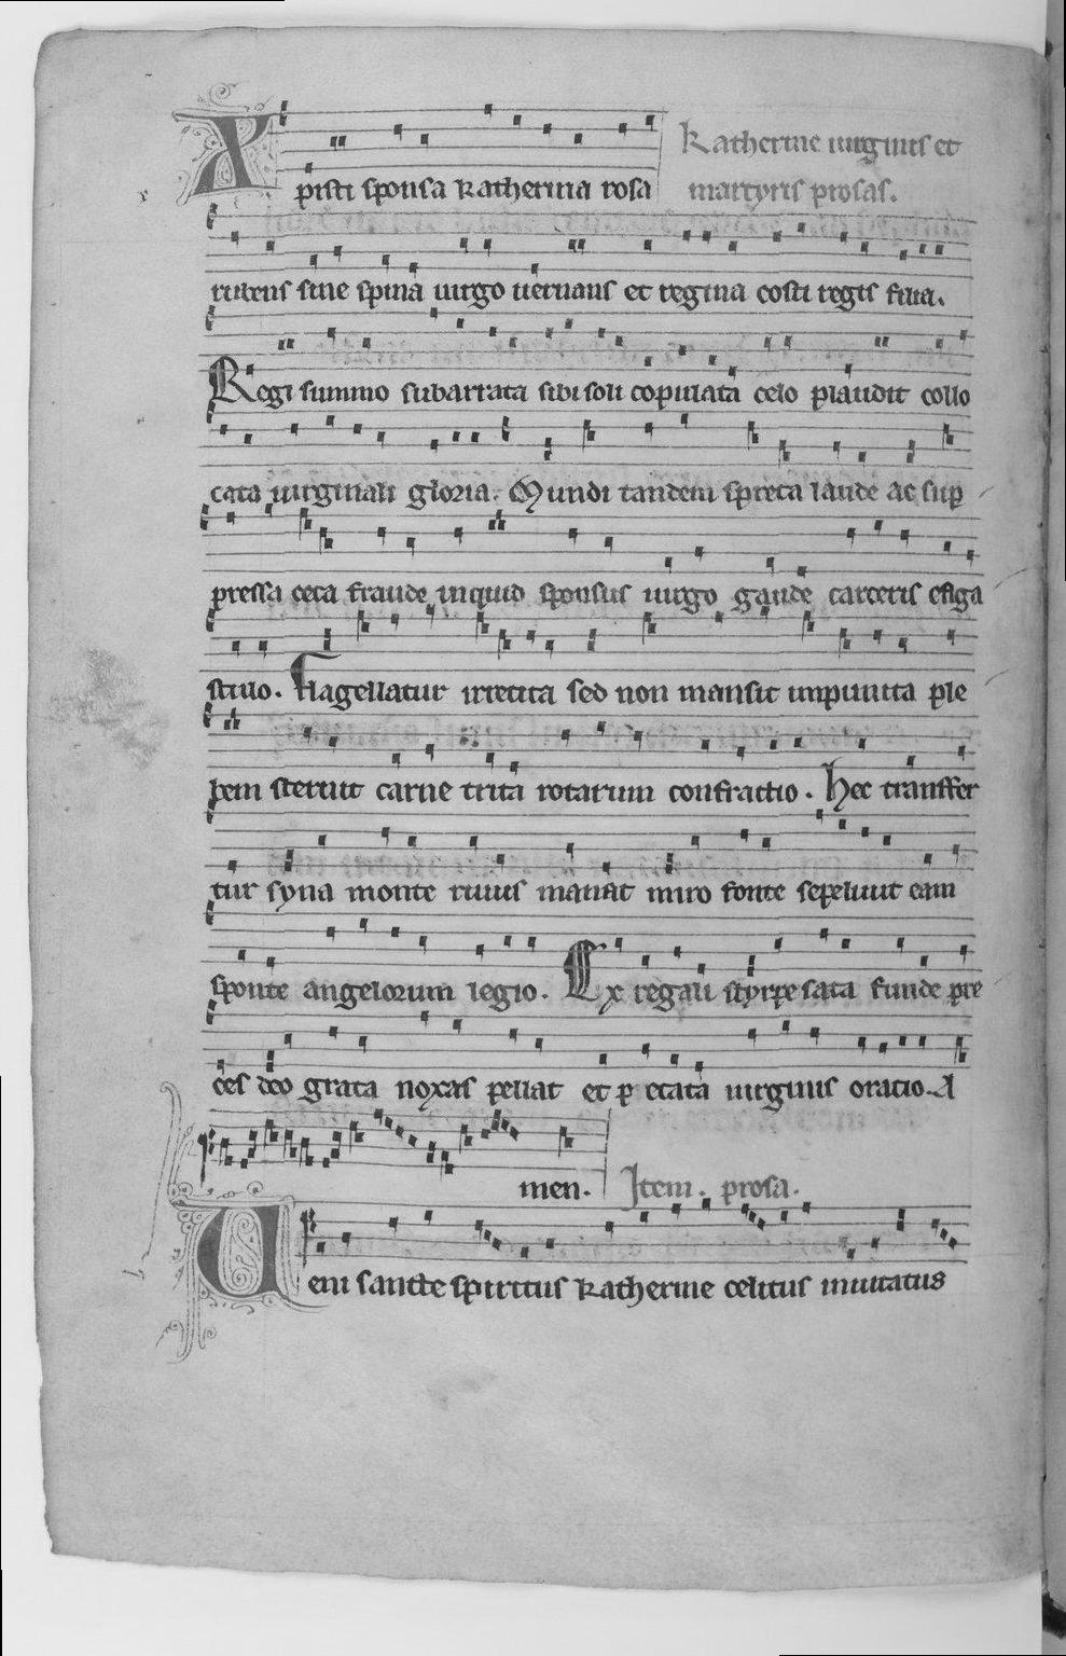 Xpisti sponsa katherina rosa
Katherine uirginis et
martyris prosas.
rubens sine spina uirgo uernans et regina costi regis filia.
Regi summo subarrata sibi soli copulata celo plaudit collo
cata uirginali gloria. Mundi tandem spreta laude ac sup
pressa ceca fraude inquid sponsus uirgo gaude carceris efiga
stulo. Flagellatur irretita sed non mansit impunita ple
bem sternit carne trita rotarum confractio. Hec transffer
tur syna monte riuus manat miro fonte sepeliuit eam
sponte angelorum legio. Ex regali styrpe sata funde pre
ces deo grata noxas pellat et p etata uirginis oratio. A
men. Item. prosa.
Veni sancte spiritus katherine celitus inuitatus